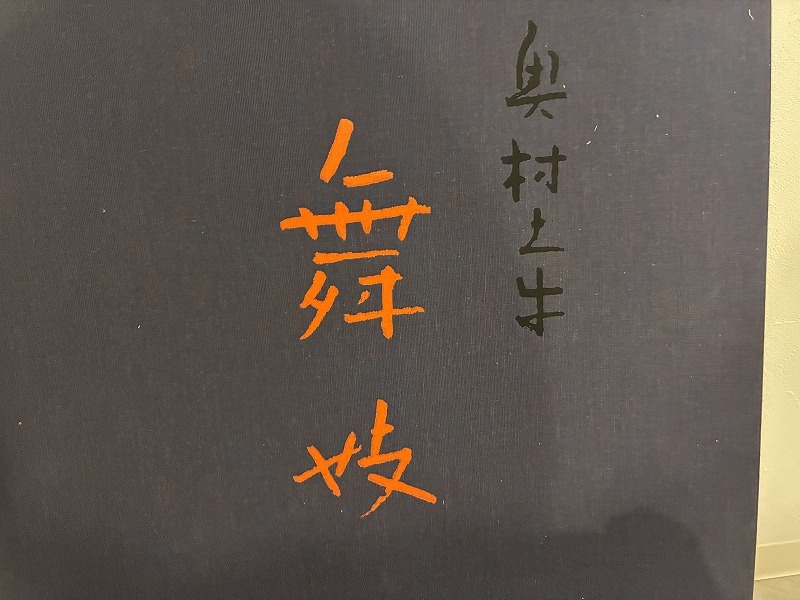 奥村土牛
舞妓